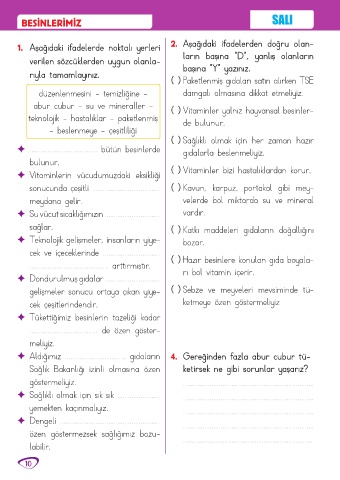 BESİNLERİMİZ
SALI
1. Aşağıdaki ifadelerde noktalı yerleri
verilen sözcüklerden uygun olanla-
rıyla tamamlayınız.
düzenlenmesini - temizliğine -
abur cubur - su ve mineraller -
teknolojik - hastalıklar - paketlenmiş
- beslenmeye - çeşitliliği
✦ .......................... bütün besinlerde
bulunur.
✦ Vitaminlerin vücudumuzdaki eksikliği
sonucunda çeşitli ..........................
meydana gelir.
✦ Su vücut sıcaklığımızın ......................
sağlar.
✦ Teknolojik gelişmeler, insanların yiye-
cek ve içeceklerinde ......................
.............................. arttırmıştır.
✦ Dondurulmuş gıdalar ......................
gelişmeler sonucu ortaya çıkan yiye-
cek çeşitlerindendir.
✦ Tükettiğimiz besinlerin tazeliği kadar
.......................... de özen göster-
meliyiz.
✦ Aldığımız .......................... gıdaların
Sağlık Bakanlığı izinli olmasına özen
göstermeliyiz.
✦ Sağlıklı olmak için sık sık ..................
yemekten kaçınmalıyız.
✦ Dengeli ......................................
özen göstermezsek sağlığımız bozu-
labilir.
2. Aşağıdaki ifadelerden doğru olan-
ların başına "D", yanlış olanların
başına "Y" yazınız.
( ) Paketlenmiş gıdaları satın alırken TSE
damgalı olmasına dikkat etmeliyiz.
( ) Vitaminler yalnız hayvansal besinler-
de bulunur.
( ) Sağlıklı olmak için her zaman hazır
gıdalarla beslenmeliyiz.
( ) Vitaminler bizi hastalıklardan korur.
( ) Kavun, karpuz, portakal gibi mey-
velerde bol miktarda su ve mineral
vardır.
( ) Katkı maddeleri gıdaların doğallığını
bozar.
( ) Hazır besinlere konulan gıda boyala-
rı bol vitamin içerir.
( ) Sebze ve meyveleri mevsiminde tü-
ketmeye özen göstermeliyiz
4. Gereğinden fazla abur cubur tü-
ketirsek ne gibi sorunlar yaşarız?
10